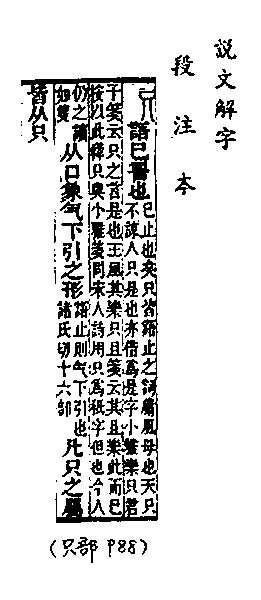 说文解字
段注本
只 語已䛐也 已止也矣只皆語止之䛐鄘風母也天只
不諒人只是也亦借爲是字小雅樂只君
子箋云只之言是也王風其樂只且箋云其且樂此而已
按以此釋只與小雅箋同宋人詩用只爲祇字但也今人
仍之讀如隻 从口象气下引之形 語止則气下引也諸氏切十六部 凡只之屬
皆从只
(只部 P88)